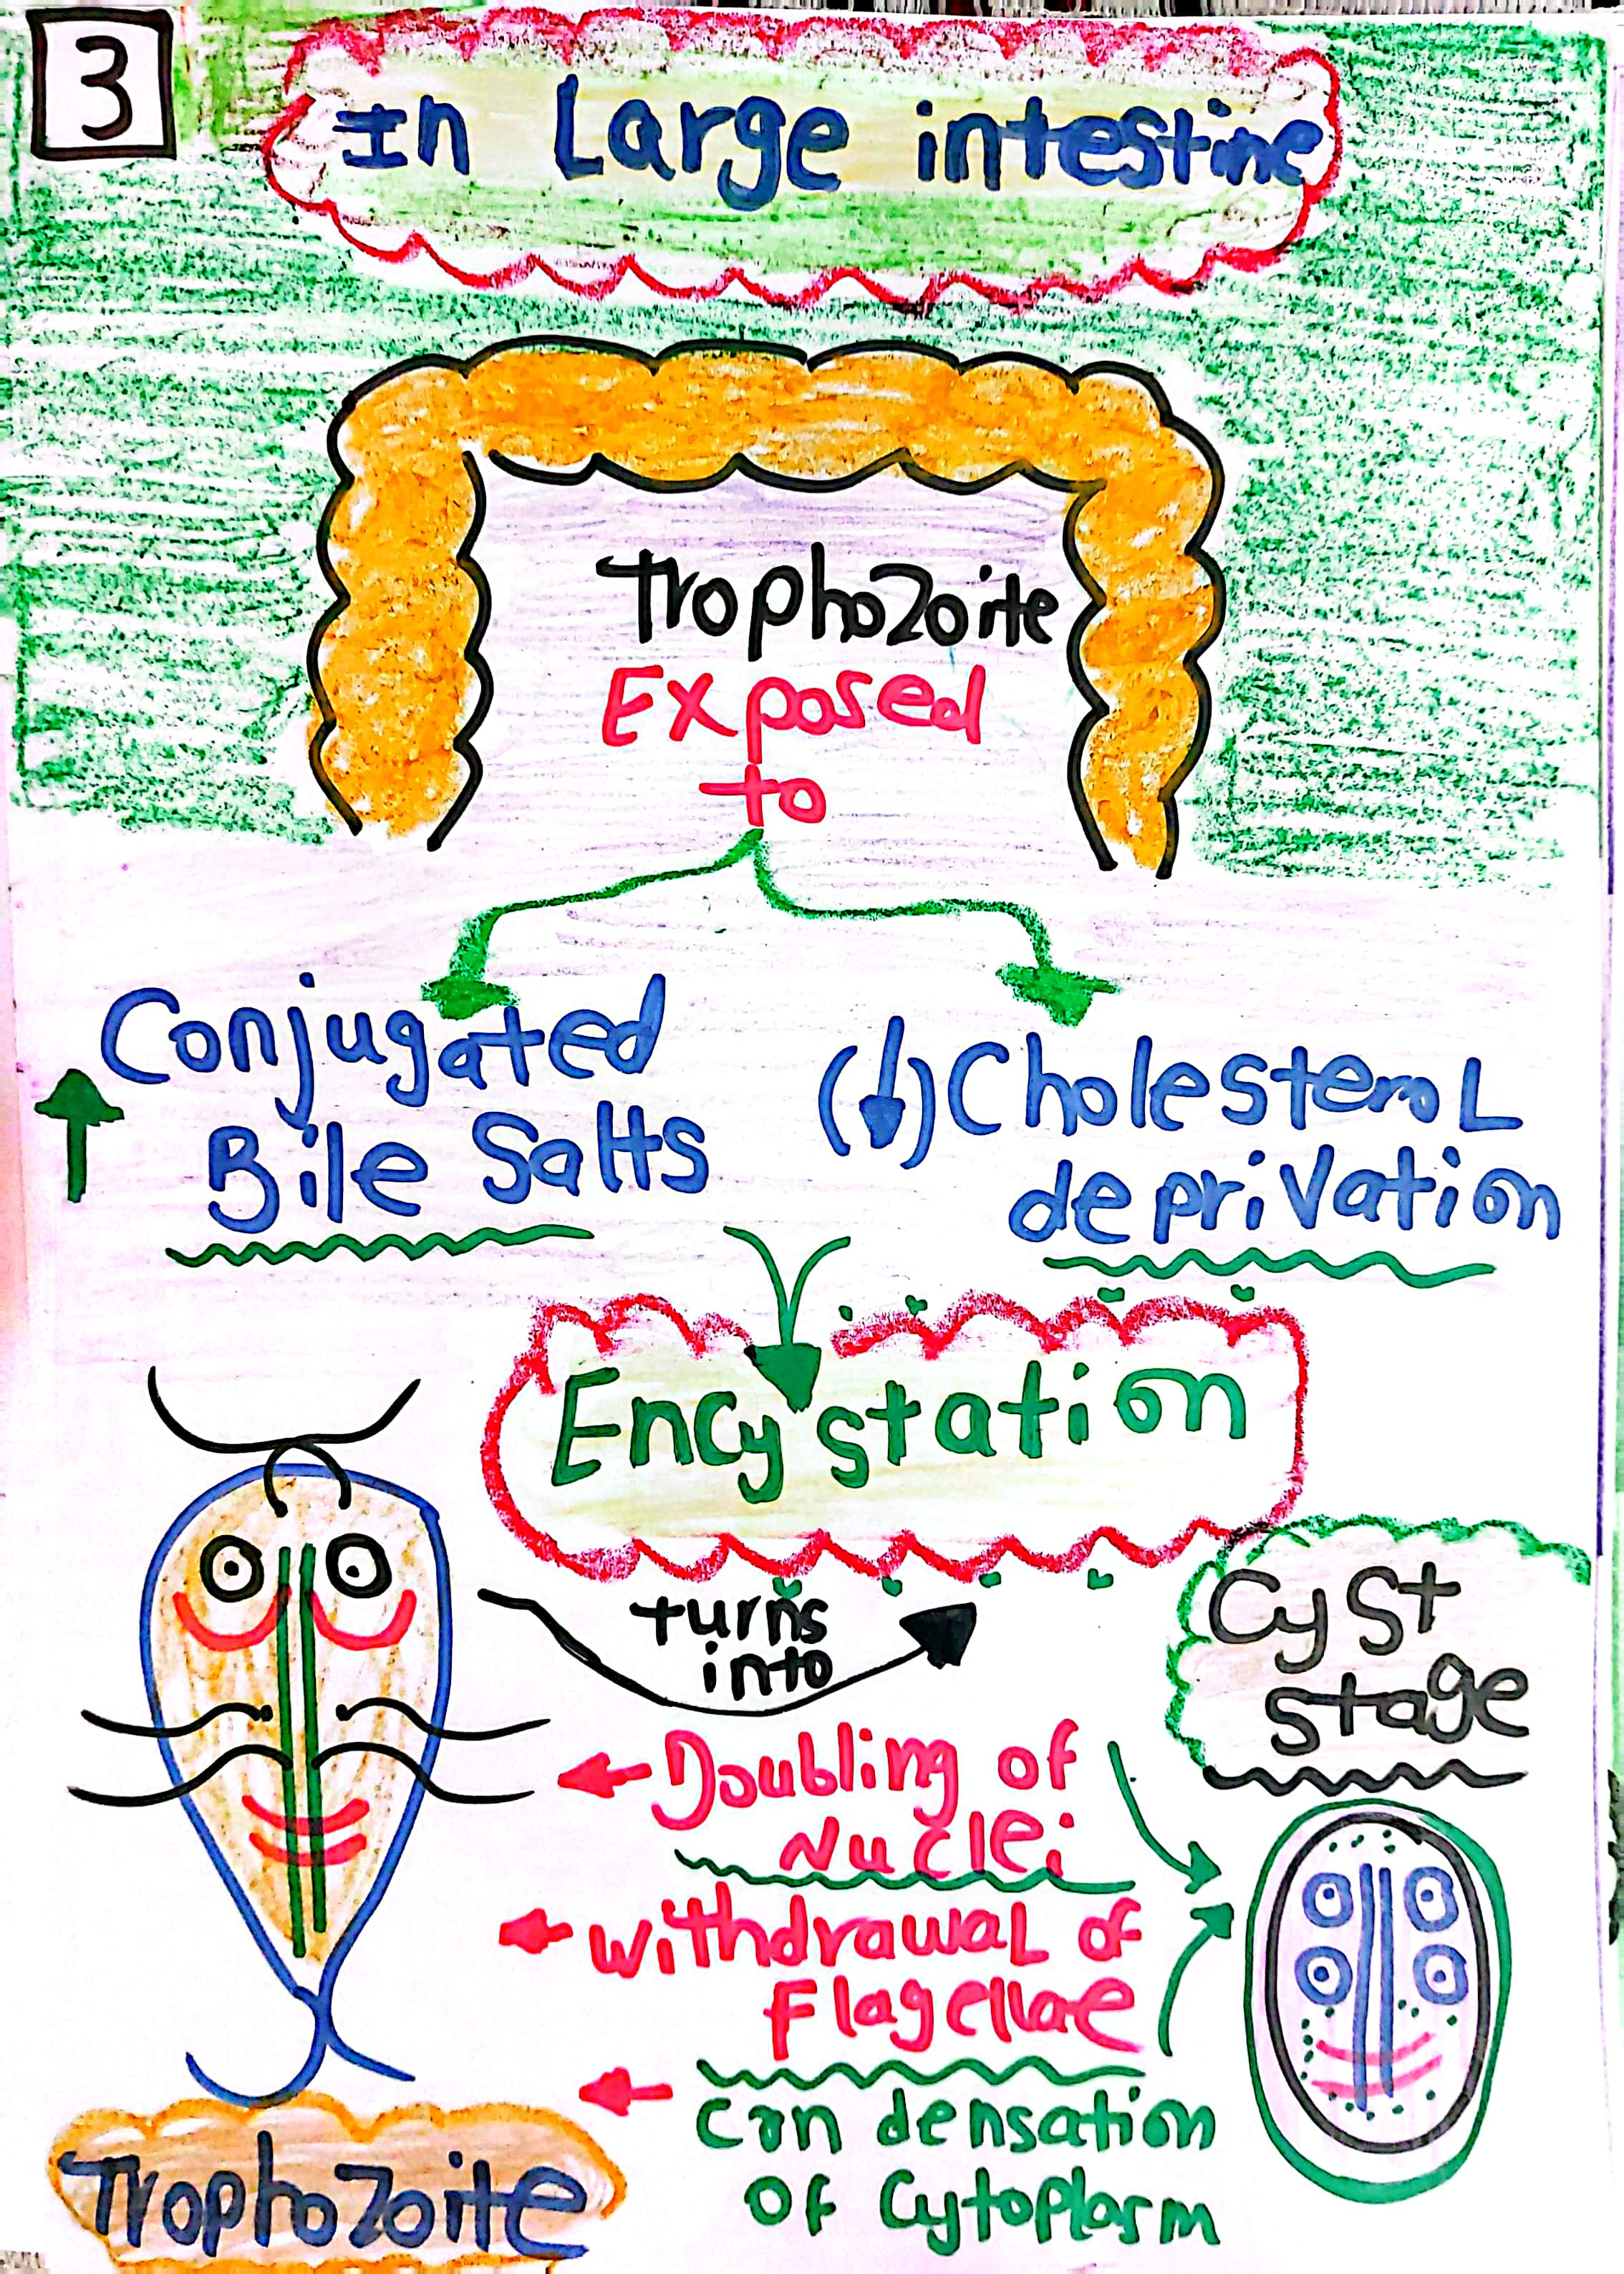 3
In Large intestine
Trophozoite
Exposed
to
Conjugated
Bile Salts
(↓) Cholesterol
deprivation
Encystation
turns
into
Cyst
stage
Doubling of
Nuclei
withdrawal of
Flagellae
Condensation
of Cytoplasm
Trophozoite